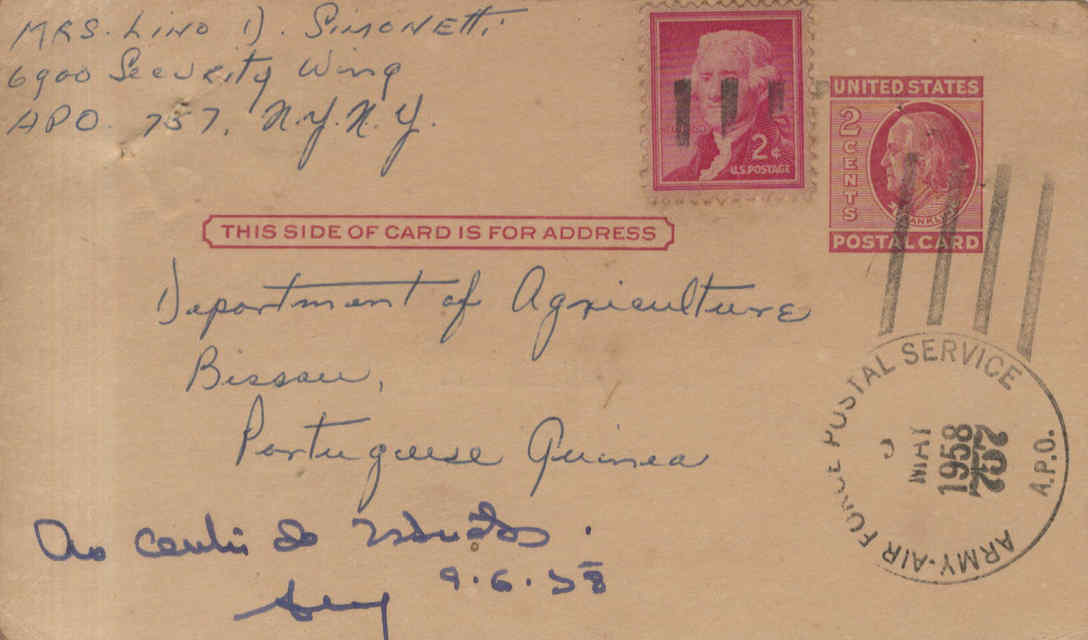 MRS. LINO D. SIMONETTI
6900 Security Wing
APO. 757, N.Y. N.Y.
2¢
U.S. POSTAGE
UNITED STATES
2 CENTS
FRANKLIN
POSTAL CARD
THIS SIDE OF CARD IS FOR ADDRESS
Department of Agriculture
Bissau,
Portuguese Guinea
ARMY-AIR FORCE POSTAL SERVICE
MAY
1958
757
A.P.O.
Ao centro de Estudos.
9.6.58